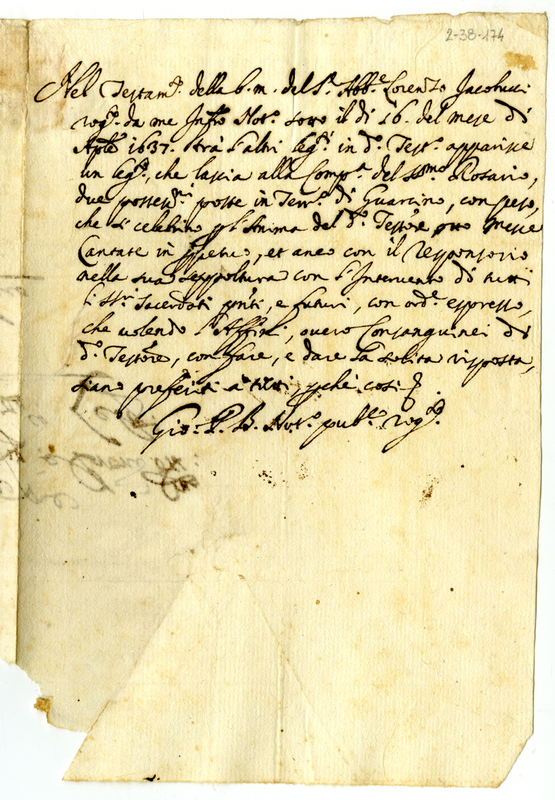 2-38-174
Nel Testam.º della b. m. del S.r Abb.e Lorenzo Jacobucci
rog.º da me Infr.º Not.º sotto il dì 16. del mese di
Aple 1637. trà l'altri leg.i in d.º Test.º apparisce
un leg.º, che lascia alla Comp.a del SS.mo Rosario,
due possess.ni poste in Terr.º di Guarcino, con peso,
che si celebrino p l'Anima del d.º Testore otto Messe
Cantate in, et anco con il Responsorio
nella sua seppoltura con l'Intervento di tutti
li SS.ri Sacerdoti pnti, e futuri, con ord.e espresso,
che volendo l', overo Consanguinei di
d.º Testore, con fare, e dare la solita risposta,
siano preferiti a tutti pche così
Gio: B. Not.º pub.º rog.º